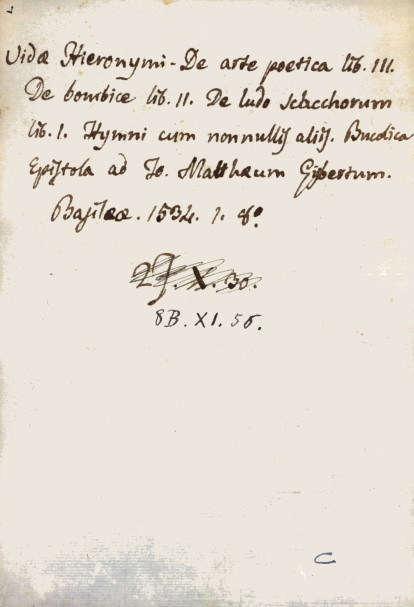 Vidæ Hieronymi - De arte poetica lib. III.
De bombice lib. II. De ludo scacchorum
lib. I. Hymni cum nonnullis aliis. Bucolica
Epistola ad Jo. Matthæum Gibertum.
Basileæ. 1534. 1. 8º
X. 30.
8B. XI. 56.
C